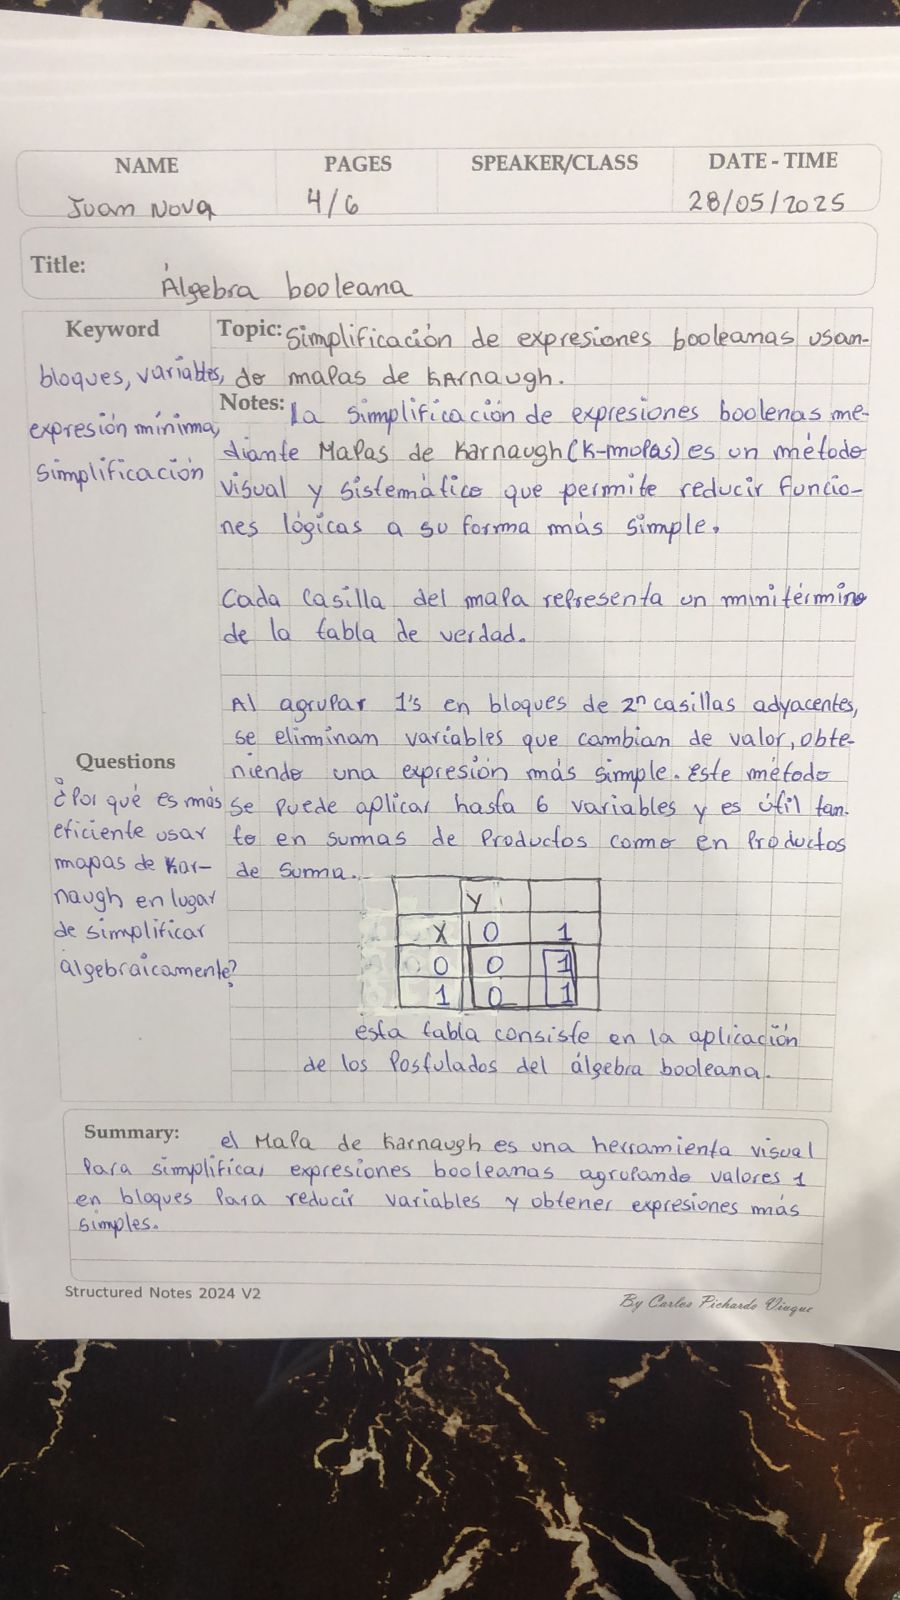 NAME PAGES SPEAKER/CLASS DATE - TIME
Juan Nova 4/6 28/05/2025
Title: Álgebra booleana
Keyword
bloques, variables,
expresión mínima,
simplificación
Topic: Simplificación de expresiones booleanas usan-
do mapas de kArnaugh.
Notes: la simplificación de expresiones boolenas me-
diante Mapas de Karnaugh (K-mapas) es un método
visual y sistemático que permite reducir funcio-
nes lógicas a su forma más simple.
Cada casilla del mapa representa un minitérmino
de la tabla de verdad.
Al agrupar 1's en bloques de 2ⁿ casillas adyacentes,
se eliminan variables que cambian de valor, obte-
niendo una expresión más simple. Este método
se puede aplicar hasta 6 variables y es útil tan-
to en sumas de Productos como en Productos
de suma.
Questions
¿Por qué es más
eficiente usar
mapas de Kar-
naugh en lugar
de simplificar
álgebraicamente?
Y
X 0 1
0 0 1
1 0 1
esta tabla consiste en la aplicación
de los Postulados del álgebra booleana.
Summary: el Mapa de karnaugh es una herramienta visual
Para simplificar expresiones booleanas agrupando valores 1
en bloques Para reducir variables y obtener expresiones más
simples.
Structured Notes 2024 V2
By Carlos Pichardo Viuque